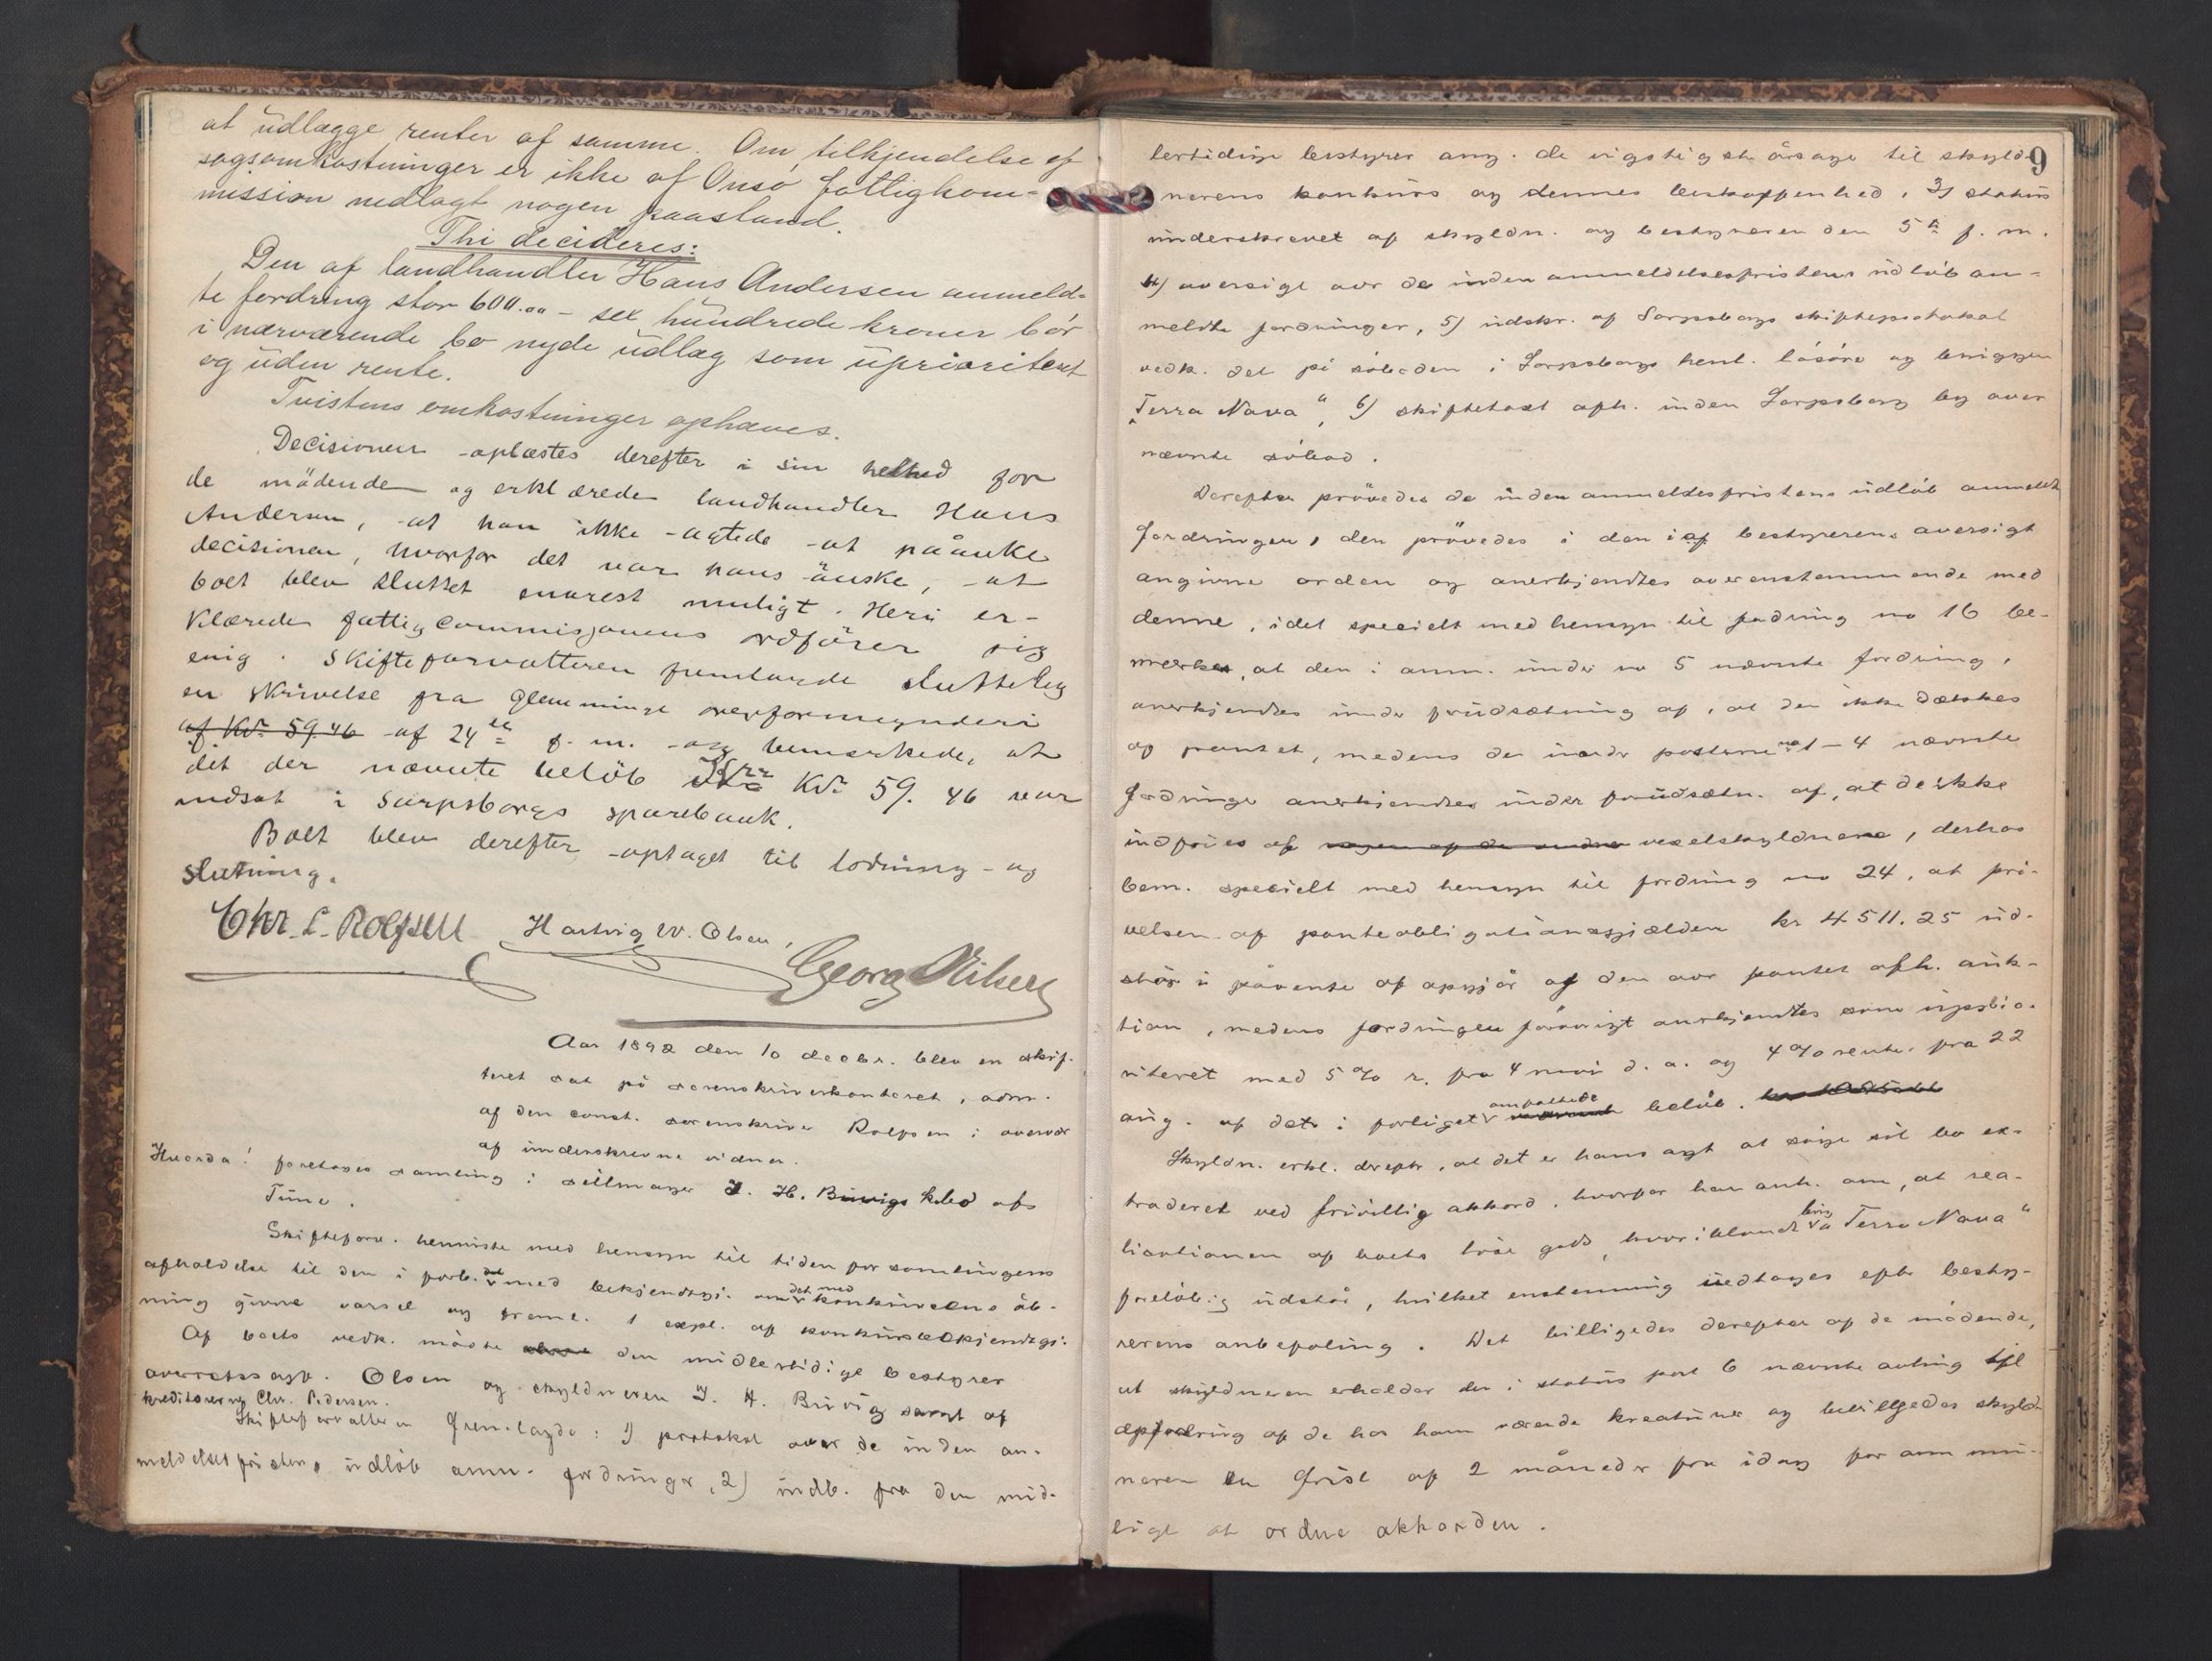 at udlægge renter af samme. Om tilkjendelse af
sagsomkostninger er ikke af Onsö fattigkom=
mission nedlagt nogen paastand.
Thi decideres:
Den af landhandler Hans Andersen anmeld=
te fordring stor 600.00 – sex hundrede kroner bør
i nærværende bo nyde udlæg som uprioriteret
og uden rente.
Tvistens omkostninger ophæves.
Decisionen oplæstes derefter i sin helhed for
de mödende og erklærede landhandler Hans
Andersen, at han ikke agtede at påanke
decisionen, hvorfor det var hans önske, at
boet blev sluttet snarest muligt. Heri er-
klærede fattigcommisjonens ordförer sig
enig. Skifteforvalteren fremlagde sluttelig
en skrivelse fra Glemminge overformynderi
af Kr. 59.46 af 24de f. m. og bemærkede, at
det der nævnte belöb Kr. 59.46 var
indsat i Sarpsborgs sparebank.
Boet blev derefter optaget til lodning og
slutning.
Chr. L. Rolfsen Hartvig W. Olsen, Georg Nilsen
Aar 1892 den 10 decbr. blev en skif-
teret sat på sorenskriverkontoret, adm.
af den const. sorenskriver Rolfsen i overvær
af underskrevne vidner.
Hvorda! foretoges samling i J. H. Buvigs kbo af
Tune.
Skifteforv. henviste med hensyn til tiden for samlingens
afholdelse til den i forb. det med bekjendtgj. om det med konkursens åb-
ning givne varsel og freml. 1 expl. af konkursbekjendtgj.
Af boets vedk. mödte den midlertidige bestyrer
overretssagf. Olsen og skyldneren J. H. Buvig samt af
kreditorerne Chr. Pedersen.
Skifteforvalteren fremlagde: 1) protokol over de inden an-
meldelsesfristens udlöb anm. fordringer, 2) indb. fra den mid-
9
lertidige bestyrer ang. de vigtigste årsager til skyld-
nerens konkurs og dennes beskaffenhed, 3) status
underskrevet af skyldn. og bestyreren den 5te f. m.
4) oversigt over de inden anmeldelsesfristens udlöb an-
meldte fordringer, 5) udskr. af Sarpsborgs skifteprotokol
vedk. det på söboden i Sarpsborgs henl. lösöre og briggen
"Terra Nova", 6) skiftetaxt afh. inden Sarpsborg by over
nævnte söbod.
Derefter prövedes de inden anmeldesfristens udlöb anmeldte
fordringer, den prövedes i den i af bestyrerens oversigt
angivne orden og anerkjendtes overenstemmende med
denne, idet specielt med hensyn til fodring no 16 be-
mærkes, at den i anm. under no 5 nævnte fordring,
anerkjendtes under forudsætning af, at den ikke dækkes
af pantet, medens de under posterne no 1–4 nævnte
fodringer anerkjendtes under forudsætn. af, at de ikke
indfries af nogen af de andre vexelskyldnere, derhos
bem. specielt med hensyn til fordring no 24, at prö-
velsen af panteobligationsgjælden kr 4511.25 ud-
står i påvente af opgjör af den over pantet afh. auk-
tion, medens fordringen forövrigt anerkjendtes som uprio-
riteret med 5 % r. fra 4 mai d. a. og 4 % rente fra 22
aug. af det i forliget omfattede belöb.
Skyldn. erkl. derefter, at det er hans agt at söge sit bo ex-
traderet ved frivillig akkord, hvorfor han anh. om, at rea-
lisationen af boets löse gods, hvoriblandt brig "Terra Nova"
forelöbig udstår, hvilket enstemmig vedtoges efter besty-
rerens anbefaling. Det billigedes derefter af de mödende,
at skyldneren erholder den i status post 6 nævnte avling til
opfodring af de hos ham værende kreaturer og bevilligedes skyld-
neren en frist af 2 måneder fra idag for om mu-
ligt at ordne akkorden.